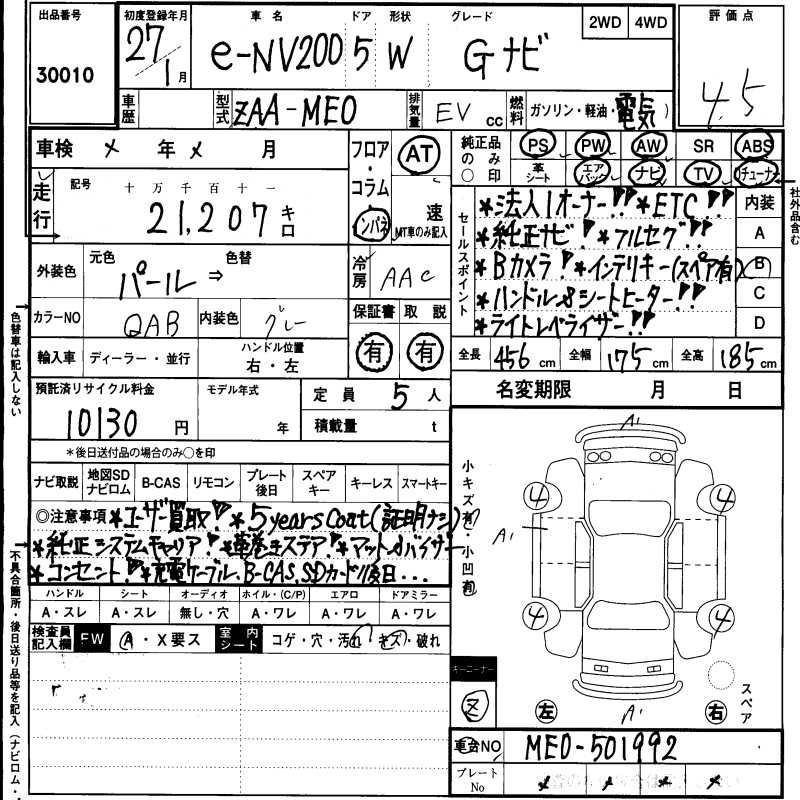 出品番号
30010
初度登録年月
27/1月
車名 ドア 形状 グレード
e-NV200 5 W Gナビ
2WD 4WD
評価点
4.5
車歴
型式 ZAA-ME0
排気量 EV cc
燃料 ガソリン・軽油・電気)
車検 × 年 × 月
走行
記号 十 万 千 百 十 一
21,207 キロ
フロア・コラム・インパネ
AT
速
MT車のみ記入
純正品のみ○印
PS PW AW SR ABS
革シート エアバッグ ナビ TV 1チューナー
社外品含む
セールスポイント
*法人1オーナー!! *ETC!!
*純正ナビ! *フルセグ!!
*Bカメラ! *インテリキー(スペア有)
*ハンドル&シートヒーター!!
*ライトレベライザー!!
内装
A
B
C
D
外装色 元色 パール ⇒ 色替
冷房 AAC
カラーNO QAB 内装色 グレー
保証書 取説
有 有
輸入車 ディーラー・並行
ハンドル位置
右・左
全長 456 cm 全幅 175 cm 全高 185 cm
名変期限 月 日
預託済リサイクル料金
10130 円
モデル年式
年
定員 5 人
積載量 t
*後日送付品の場合のみ○を印
ナビ取説 地図SDナビロム B-CAS リモコン プレート後日 スペアキー キーレス スマートキー
◎注意事項 *ユーザー買取! *5years coat(証明ナシ)
*純正システムキャリア! *革巻きステア! *マット&バイザー
*コンセント! *充電ケーブル、B-CAS、SDカード後日...
ハンドル シート オーディオ ホイル・(C/P) エアロ ドアミラー
A・スレ A・スレ 無し・穴 A・ワレ A・ワレ A・ワレ
検査員記入欄 FW A・X要ス 室内シート コゲ・穴・汚れ・キズ・破れ
色替車は記入しない
不具合箇所・後日送り品等を記入(ナビロム・
小キズ有・小凹有
A1
4 4
A1
4 4
A1
キーニーナー
左 右
スペア
車台NO ME0-501992
プレートNo